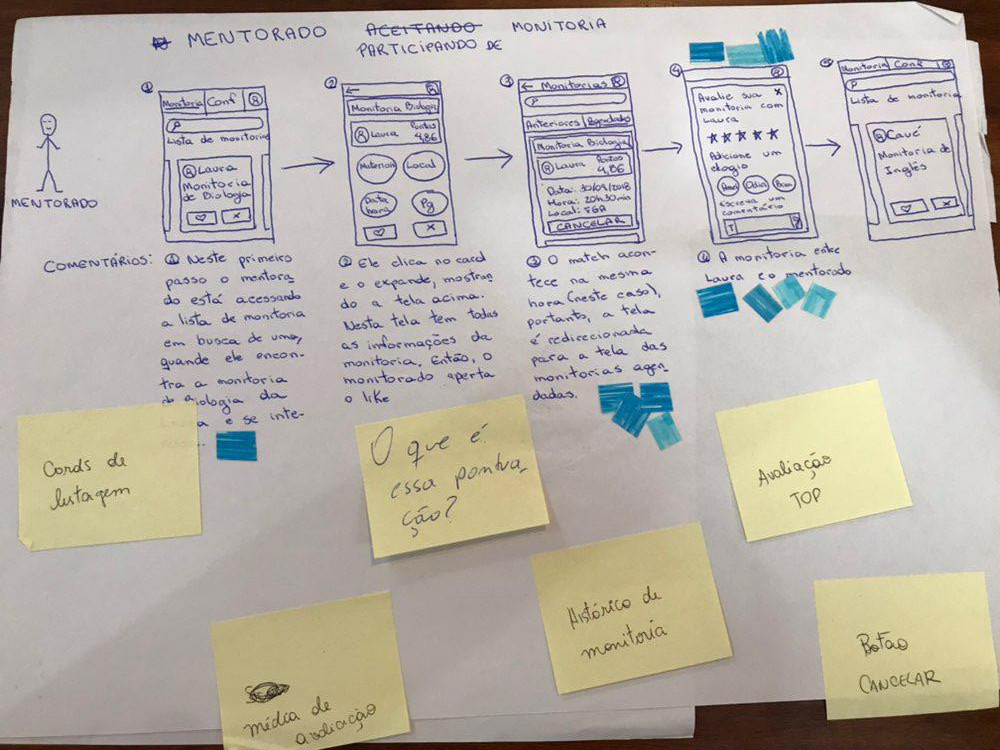 MENTORADO ACEITANDO MONITORIA
PARTICIPANDO DE
MENTORADO
1
Monitoria Conf
Lista de monitoria
Laura
Monitoria
de Biologia
2
Monitoria Biologia
Laura Pontos
4,86
Material Local
Data
hora
Pg
3
Monitorias
Anteriores Agendado
Monitoria Biologia
Laura Pontos
4,86
Data: 30/09/2018
Hora: 20h30min
Local: FGA
CANCELAR
4
Avalie sua x
monitoria com
Laura
Adicione um
elogio
Escreva um
comentário
T
5
Monitoria Conf
Lista de monitoria
Cauê
Monitoria de
Inglês
COMENTÁRIOS:
1 Neste primeiro
passo o mentora
do está acessando
a lista de monitoria
em busca de uma,
quande ele encon-
tra a monitoria
de Biologia da
e se inte-
2 Ele clica no card
e o expande, mostran
do a tela acima.
Nesta tela tem todas
as informações da
monitoria. Então, o
monitorado aperta
o like
3 O match acon-
tece na mesma
hora (neste caso),
portanto, a tela
é redirecionada
para a tela das
monitorias agen
dadas.
4 A monitoria entre
Laura e o mentorado
Cards de
listagem
O que é
essa pontua
ção?
Avaliação
TOP
Histórico de
monitoria
média de
avaliação
Botão
CANCELAR